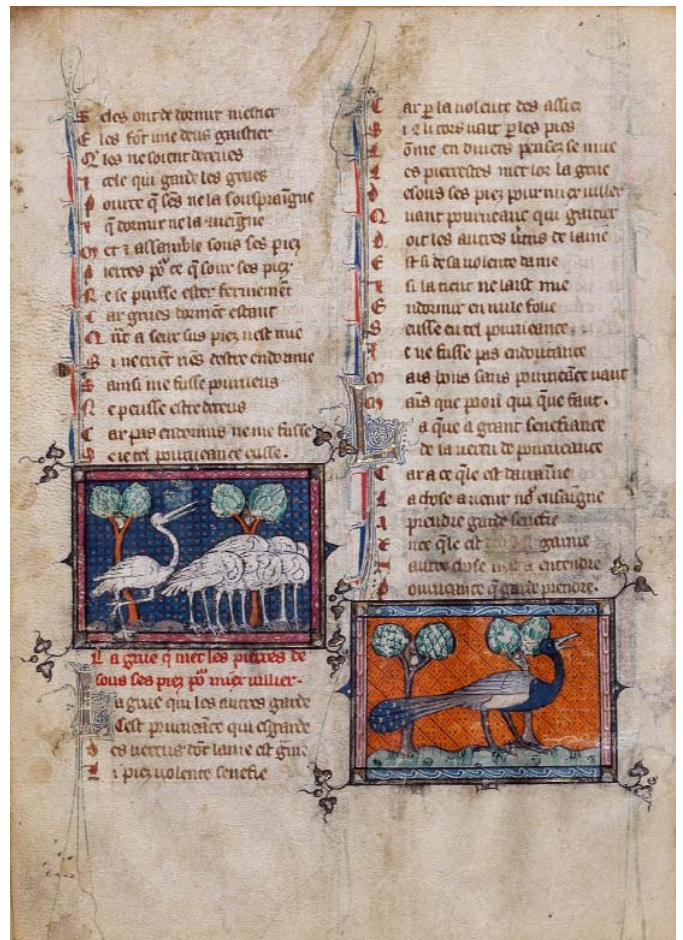 S eles ont de dormir mestier
E les font une deus gaitier
Q les ne soient deceues
I cele qui garde les grues
P ource q ses ne la sousprangne
E q dormir ne la
M et & assamble sous ses piez
P ierres po ce q sour ses piez
N e se puisse ester fermement
C ar grues dorment estant
Q nt a seur sus piez nest mie
S i ne crient nes destre endormie
S ainsi me fusse pourueus
N e peusse estre deceus
C ar pas endormis ne me fusse
S e ie tel pourueance eusse.
L a grue q met les pierres de
sous ses piez po miex uillier.
L a grue qui les autres garde
C est pourueance qui esgarde
D es uertus dont lame est
L i piez uolente senefie
C ar p la uolente des
S i & li cors uait p les pies
L ome en diuers pensez se mue
L es pierretes met lor la grue
D esous ses piez pour miex uillier
Q uant pourueance qui gaitier
D oit les autres uertus de lame
E st si de sa uolente dame
K si la tient ne laist mie
E ndormir en nule folie
S eusse eu tel pourueance
I e ne fusse pas en doutance
M ais bons sans pourueance uaut
M ains que proii qui que faut.
L a que a grant senefiance
de la uertu de pourueance
C ar a ce qle est
L a chose a uenir no ensaigne
A prendre garde senefie
E nce qle est garnie
L autre chose a entendre
P ourueance q garde prendre.